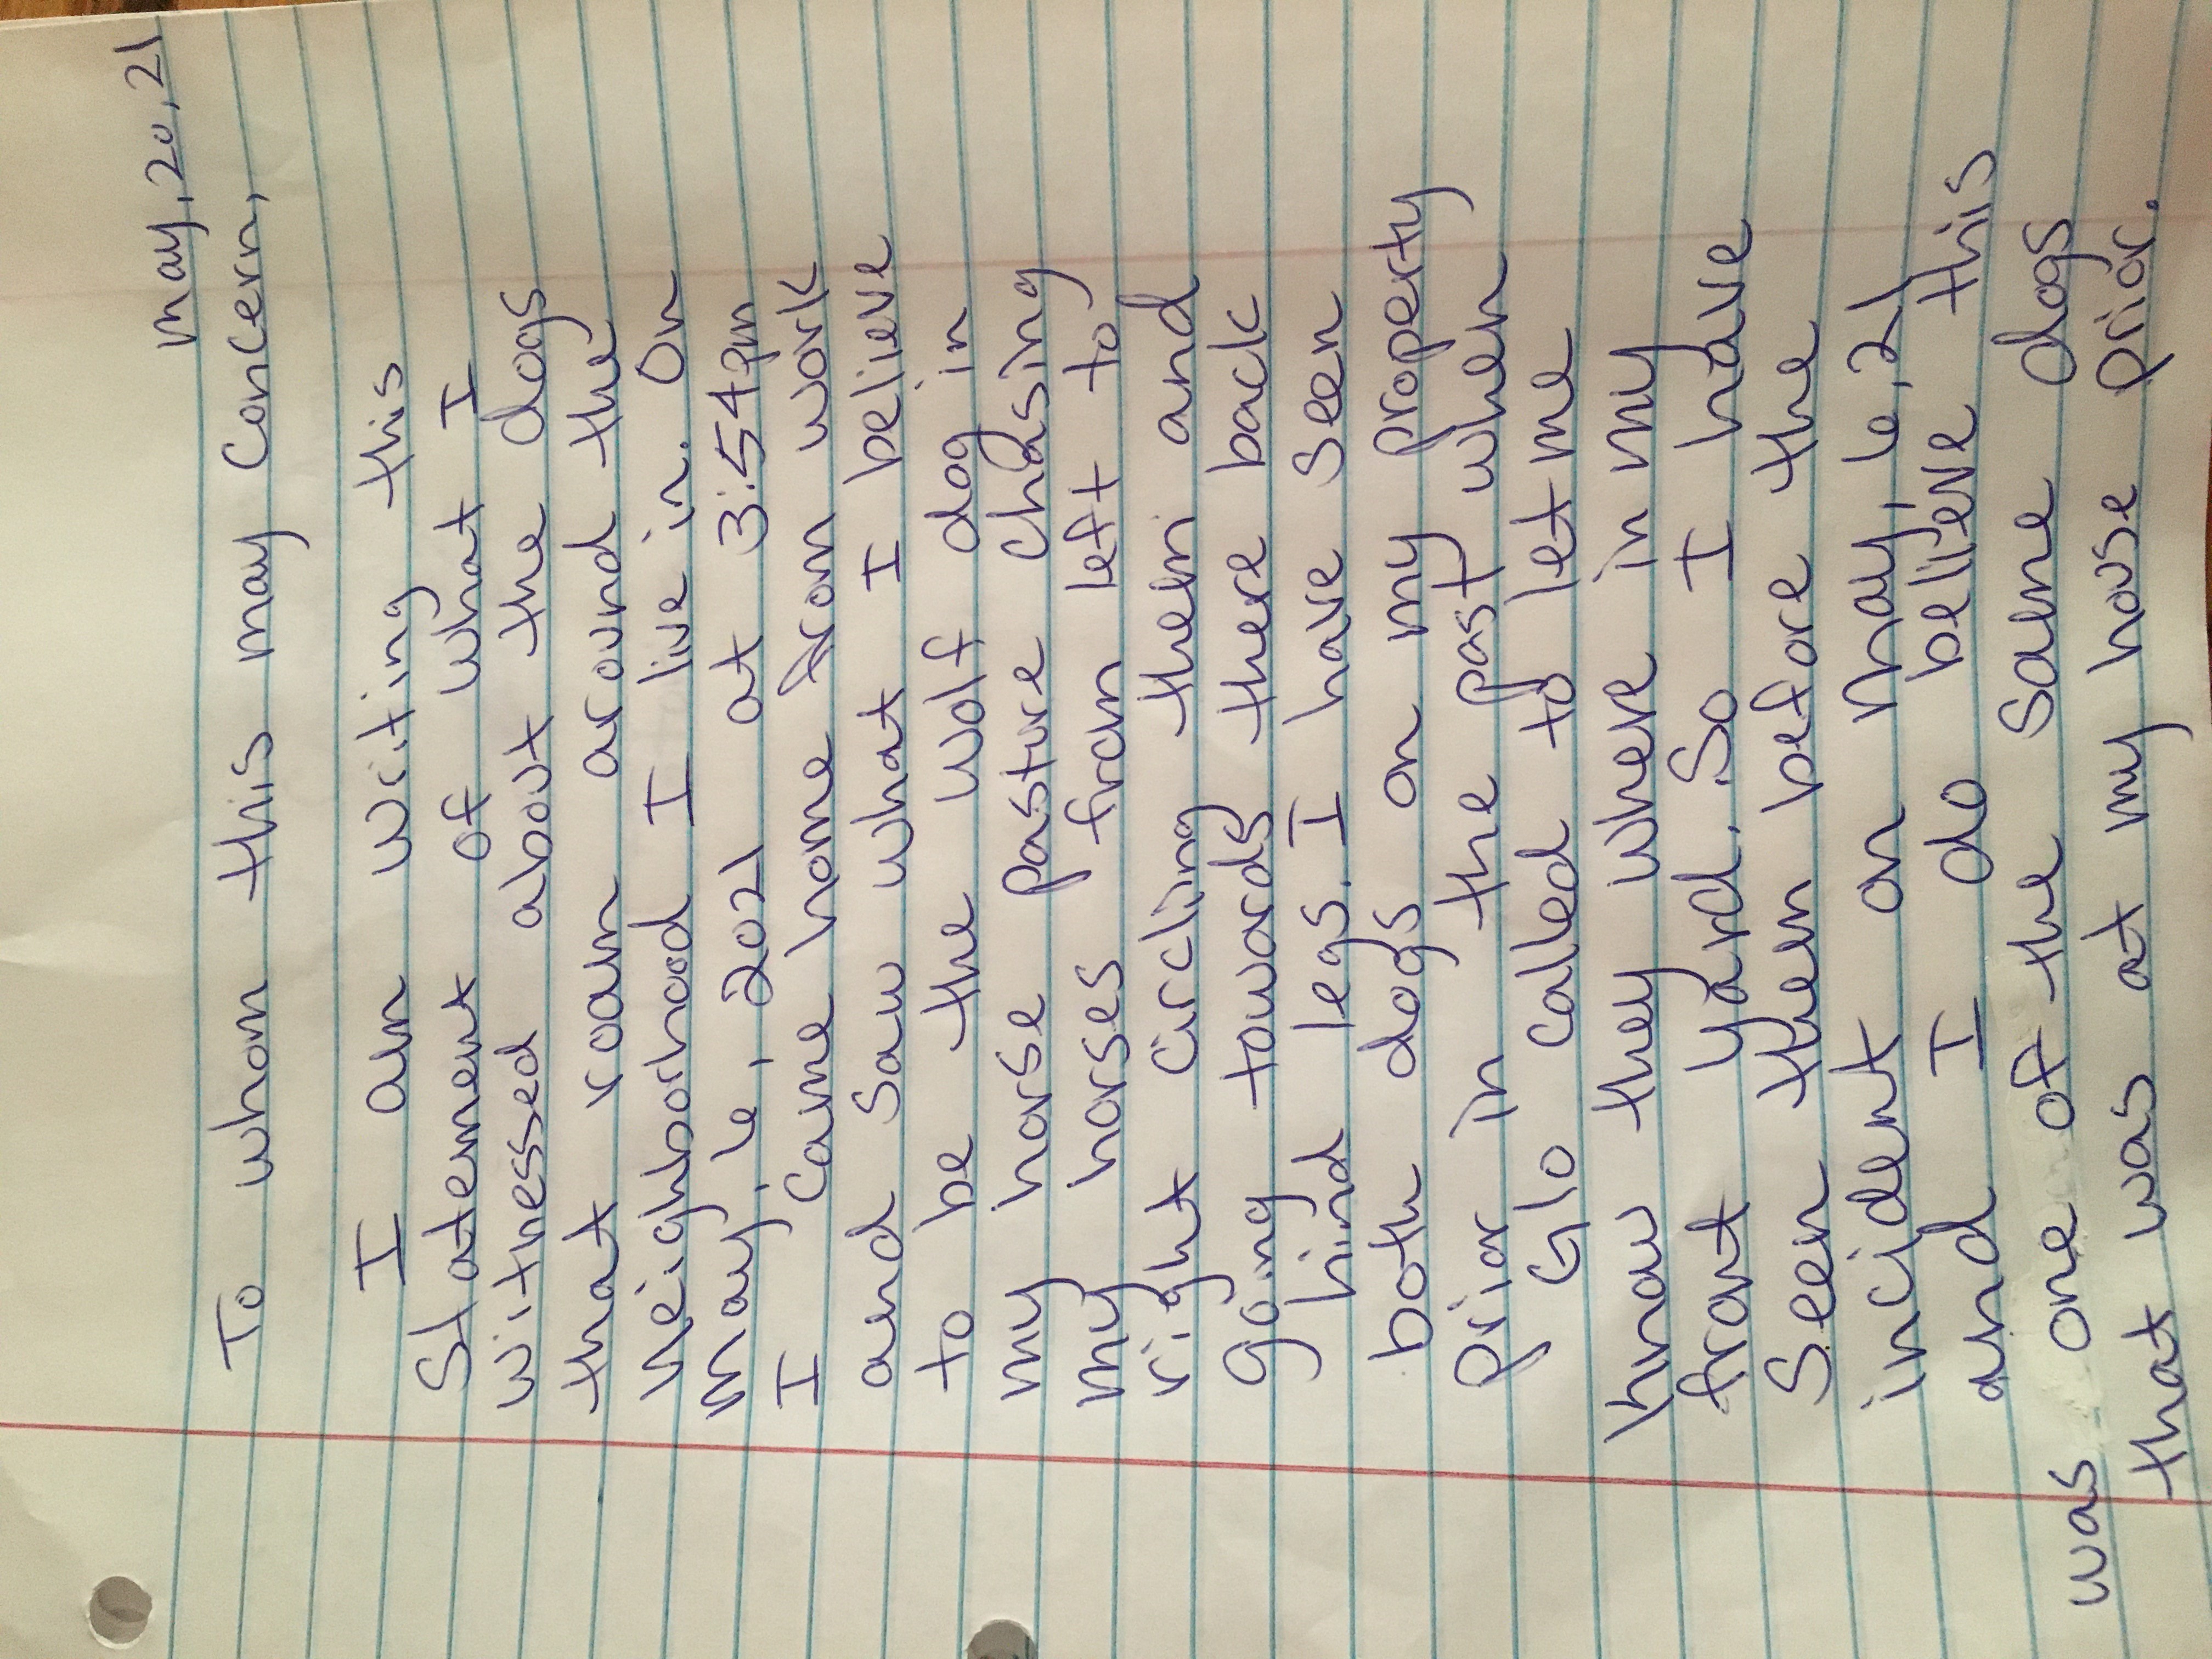 may, 20, 21
To whom this may concern,
I am writing this
statement of what I
witnessed about the dogs
that roam around the
neighborhood I live in. On
may, 6, 2021 at 3:54pm
I came home from work
and saw what I believe
to be the wolf dog in
my horse pasture chasing
my horses from left to
right circling them and
going towards there back
hind legs. I have seen
both dogs on my property
prior in the past when
Glo called to let me
know they where in my
front yard. So I have
seen them before the
incident on may, 6, 21
and I do believe this
was one of the same dogs
that was at my house prior.